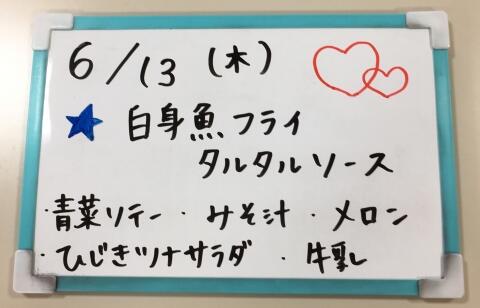 6/13 (木)
★ 白身魚フライ
タルタルソース
・青菜ソテー ・みそ汁 ・メロン
・ひじきツナサラダ ・牛乳